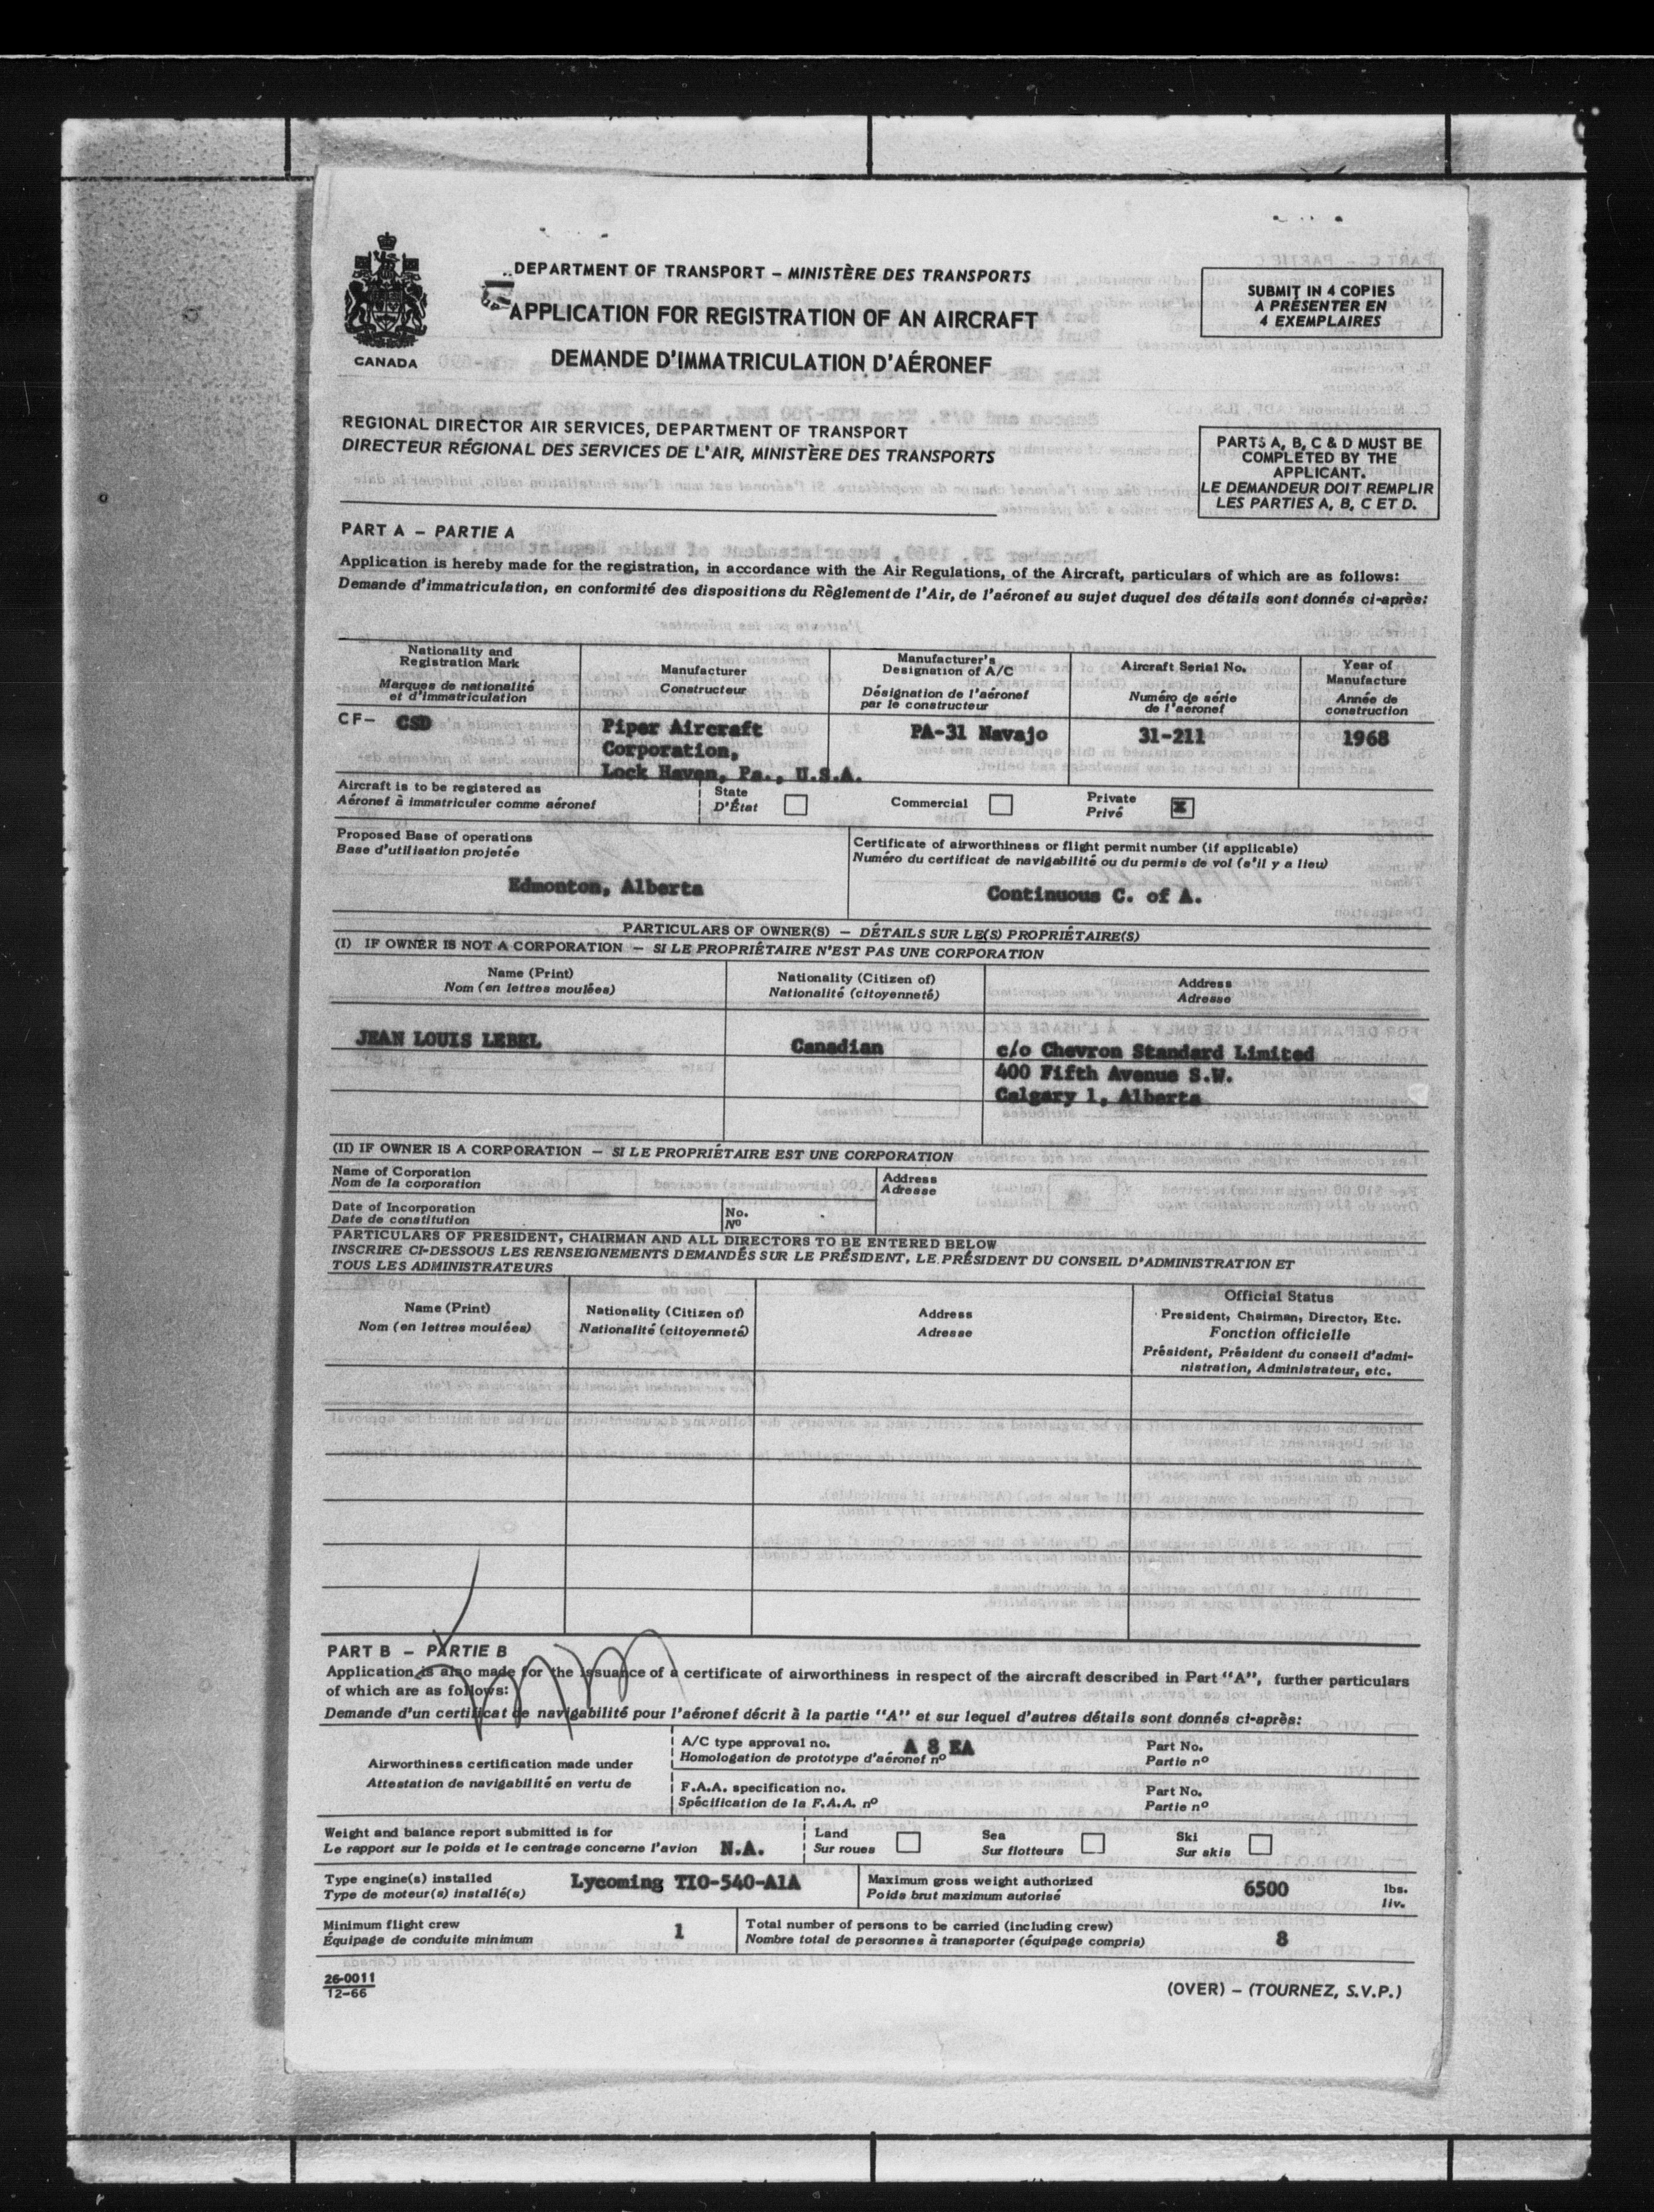 CANADA
DEPARTMENT OF TRANSPORT – MINISTÈRE DES TRANSPORTS
APPLICATION FOR REGISTRATION OF AN AIRCRAFT
DEMANDE D'IMMATRICULATION D'AÉRONEF
SUBMIT IN 4 COPIES
A PRÉSENTER EN
4 EXEMPLAIRES
REGIONAL DIRECTOR AIR SERVICES, DEPARTMENT OF TRANSPORT
DIRECTEUR RÉGIONAL DES SERVICES DE L'AIR, MINISTÈRE DES TRANSPORTS
PARTS A, B, C & D MUST BE
COMPLETED BY THE
APPLICANT.
LE DEMANDEUR DOIT REMPLIR
LES PARTIES A, B, C ET D.
PART A – PARTIE A
Application is hereby made for the registration, in accordance with the Air Regulations, of the Aircraft, particulars of which are as follows:
Demande d'immatriculation, en conformité des dispositions du Règlement de l'Air, de l'aéronef au sujet duquel des détails sont donnés ci-après:
Nationality and
Registration Mark
Marques de nationalité
et d'immatriculation
Manufacturer
Constructeur
Manufacturer's
Designation of A/C
Désignation de l'aéronef
par le constructeur
Aircraft Serial No.
Numéro de série
de l'aéronef
Year of
Manufacture
Année de
construction
CF– CSD
Piper Aircraft
Corporation,
Lock Haven, Pa., U.S.A.
PA-31 Navajo
31-211
1968
Aircraft is to be registered as
Aéronef à immatriculer comme aéronef
State
D'État
Commercial
Private
Privé
X
Proposed Base of operations
Base d'utilisation projetée
Edmonton, Alberta
Certificate of airworthiness or flight permit number (if applicable)
Numéro du certificat de navigabilité ou du permis de vol (s'il y a lieu)
Continuous C. of A.
PARTICULARS OF OWNER(S) – DÉTAILS SUR LE(S) PROPRIÉTAIRE(S)
(I) IF OWNER IS NOT A CORPORATION – SI LE PROPRIÉTAIRE N'EST PAS UNE CORPORATION
Name (Print)
Nom (en lettres moulées)
Nationality (Citizen of)
Nationalité (citoyenneté)
Address
Adresse
JEAN LOUIS LEBEL
Canadian
c/o Chevron Standard Limited
400 Fifth Avenue S.W.
Calgary 1, Alberta
(II) IF OWNER IS A CORPORATION – SI LE PROPRIÉTAIRE EST UNE CORPORATION
Name of Corporation
Nom de la corporation
Address
Adresse
Date of Incorporation
Date de constitution
No.
Nº
PARTICULARS OF PRESIDENT, CHAIRMAN AND ALL DIRECTORS TO BE ENTERED BELOW
INSCRIRE CI-DESSOUS LES RENSEIGNEMENTS DEMANDÉS SUR LE PRÉSIDENT, LE PRÉSIDENT DU CONSEIL D'ADMINISTRATION ET
TOUS LES ADMINISTRATEURS
Name (Print)
Nom (en lettres moulées)
Nationality (Citizen of)
Nationalité (citoyenneté)
Address
Adresse
Official Status
President, Chairman, Director, Etc.
Fonction officielle
Président, Président du conseil d'admi-
nistration, Administrateur, etc.
PART B – PARTIE B
Application is also made for the issuance of a certificate of airworthiness in respect of the aircraft described in Part "A", further particulars
of which are as follows:
Demande d'un certificat de navigabilité pour l'aéronef décrit à la partie "A" et sur lequel d'autres détails sont donnés ci-après:
Airworthiness certification made under
Attestation de navigabilité en vertu de
A/C type approval no.
Homologation de prototype d'aéronef nº
A 8 EA
Part No.
Partie nº
F.A.A. specification no.
Spécification de la F.A.A. nº
Part No.
Partie nº
Weight and balance report submitted is for
Le rapport sur le poids et le centrage concerne l'avion
N.A.
Land
Sur roues
Sea
Sur flotteurs
Ski
Sur skis
Type engine(s) installed
Type de moteur(s) installé(s)
Lycoming TIO-540-A1A
Maximum gross weight authorized
Poids brut maximum autorisé
6500
lbs.
liv.
Minimum flight crew
Équipage de conduite minimum
1
Total number of persons to be carried (including crew)
Nombre total de personnes à transporter (équipage compris)
8
26-0011
12-66
(OVER) – (TOURNEZ, S.V.P.)